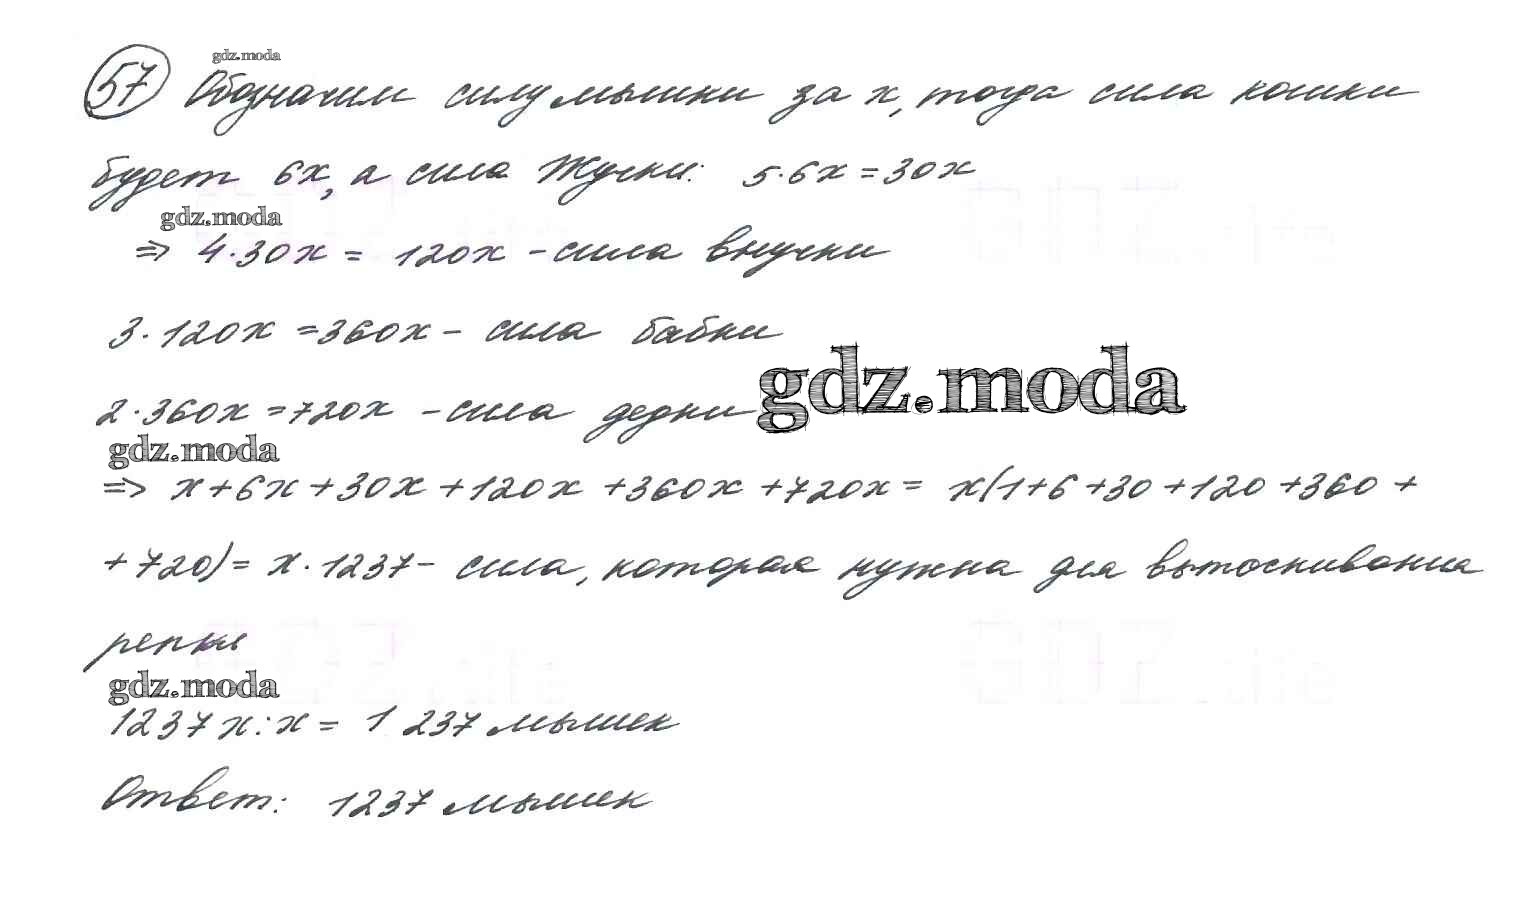 gdz.moda
57 Обозначим силу мышки за x, тогда сила кошки
будет 6x, а сила Жучки: 5·6x = 30x
gdz.moda
=> 4·30x = 120x - сила внучки
3·120x = 360x - сила бабки
gdz.moda
2·360x = 720x - сила дедки
gdz.moda
=> x + 6x + 30x + 120x + 360x + 720x = x(1 + 6 + 30 + 120 + 360 +
+ 720) = x·1237 - сила, которая нужна для вытаскивания
репки
gdz.moda
1237x : x = 1 237 мышек
Ответ: 1237 мышек